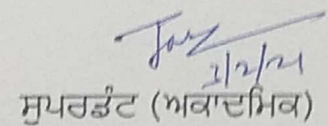 1/2/21
ਸੁਪਰਡੰਟ (ਅਕਾਦਮਿਕ)